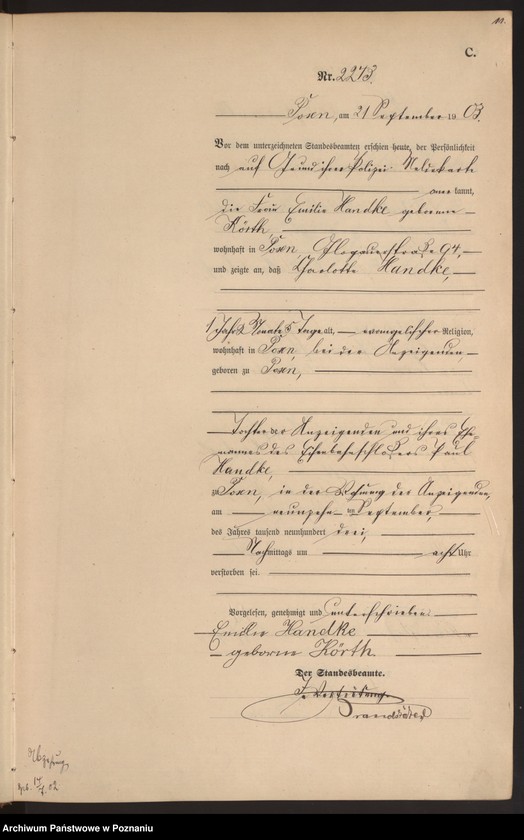 C.
Nr. 2273.
Posen, am 21 September 1903.
Vor dem unterzeichneten Standesbeamten erschien heute, der Persönlichkeit
nach auf Grund ihrer Polizei Meldekarte
kannt,
die Frau Emilie Handke geborene
Körth,
wohnhaft in Posen, Glogauerstraße 94,
und zeigte an, daß Charlotte Handke,
1 Jahr 2 Monate 5 Tage alt, evangelischer Religion,
wohnhaft in Posen, bei der Anzeigenden
geboren zu Posen,
Tochter der Anzeigenden und ihres Ehe-
mannes des Eisenbahnschlossers Paul
Handke,
zu Posen, in der Wohnung der Anzeigenden,
am neunzehnten September,
des Jahres tausend neunhundert drei,
Nachmittags um acht Uhr
verstorben sei.
Vorgelesen, genehmigt und unterschrieben
Emilie Handke
geborene Körth.
Der Standesbeamte.
In Vertretung.
Archiwum Państwowe w Poznaniu